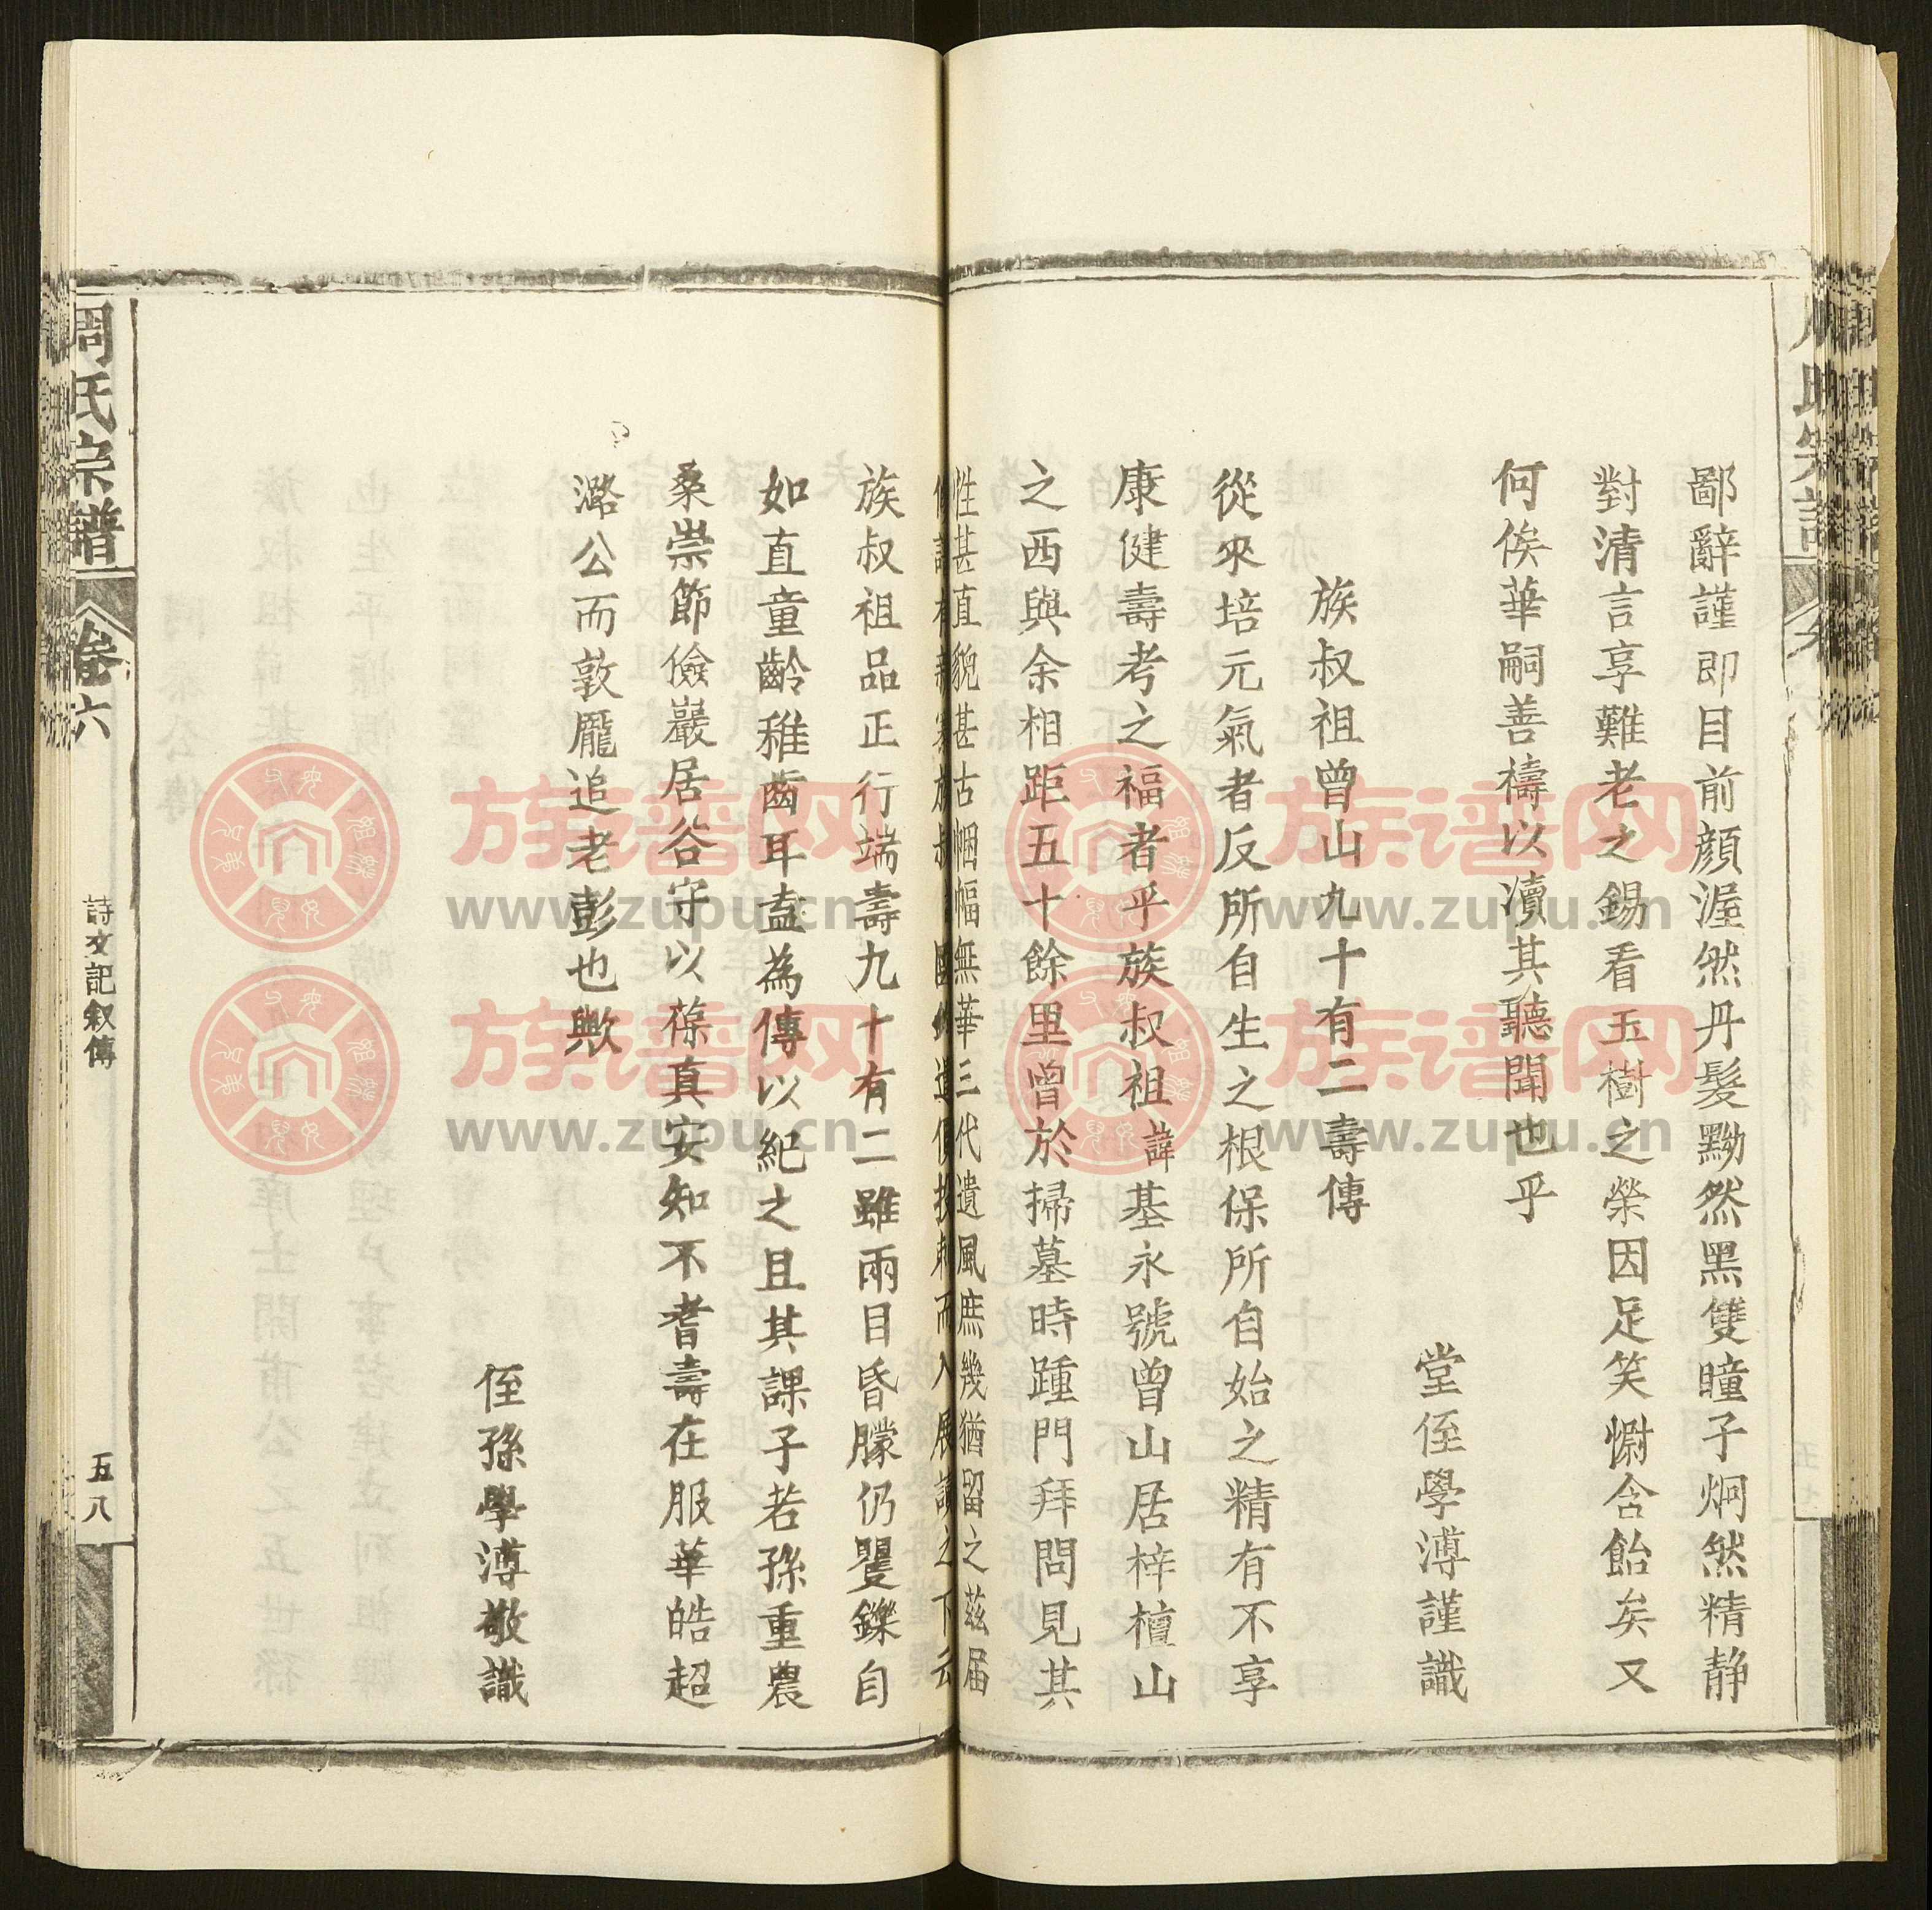 鄙辭謹即目前顔渥然丹髮黝然黑雙瞳子炯然精静
對清言享難老之錫看玉樹之榮因足笑懰含飴矣又
何俟華嗣善禱以瀆其聽聞也乎
堂侄學溥謹識
族叔祖曾山九十有二壽傳
從來培元氣者反所自生之根保所自始之精有不享
康健壽考之福者乎族叔祖諱基永號曾山居梓檀山
之西與余相距五十餘里曾於掃墓時踵門拜問見其
性甚直貌甚古悃愊無華三代遺風庶幾猶留之茲届
修譜有 族叔 國 遣價投刺而入展讀之下云
族叔祖品正行端壽九十有二雖兩目昏朦仍矍鑠自
如直童齡稚齒耳盍為傳以紀之且其課子若孫重農
桑崇節儉巖居谷守以葆真安知不耆壽在服華皓超
潞公而敦龐追老彭也歟
侄孫學溥敬識
周氏宗譜
卷六
詩文記叙傳
五八
族谱网
www.zupu.cn
族谱网
www.zupu.cn
族谱网
www.zupu.cn
族谱网
www.zupu.cn